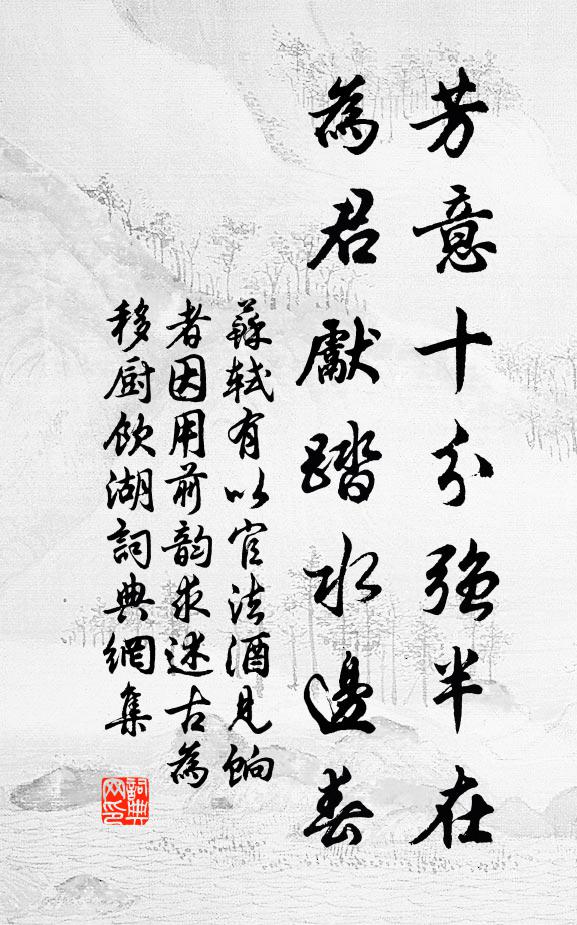 芳意十分強半在
為君獻踏水邊春
蘇軾有以官法酒見餉
者因用前韵求述古為
移廚飲湖詞典網集
詞典
网印